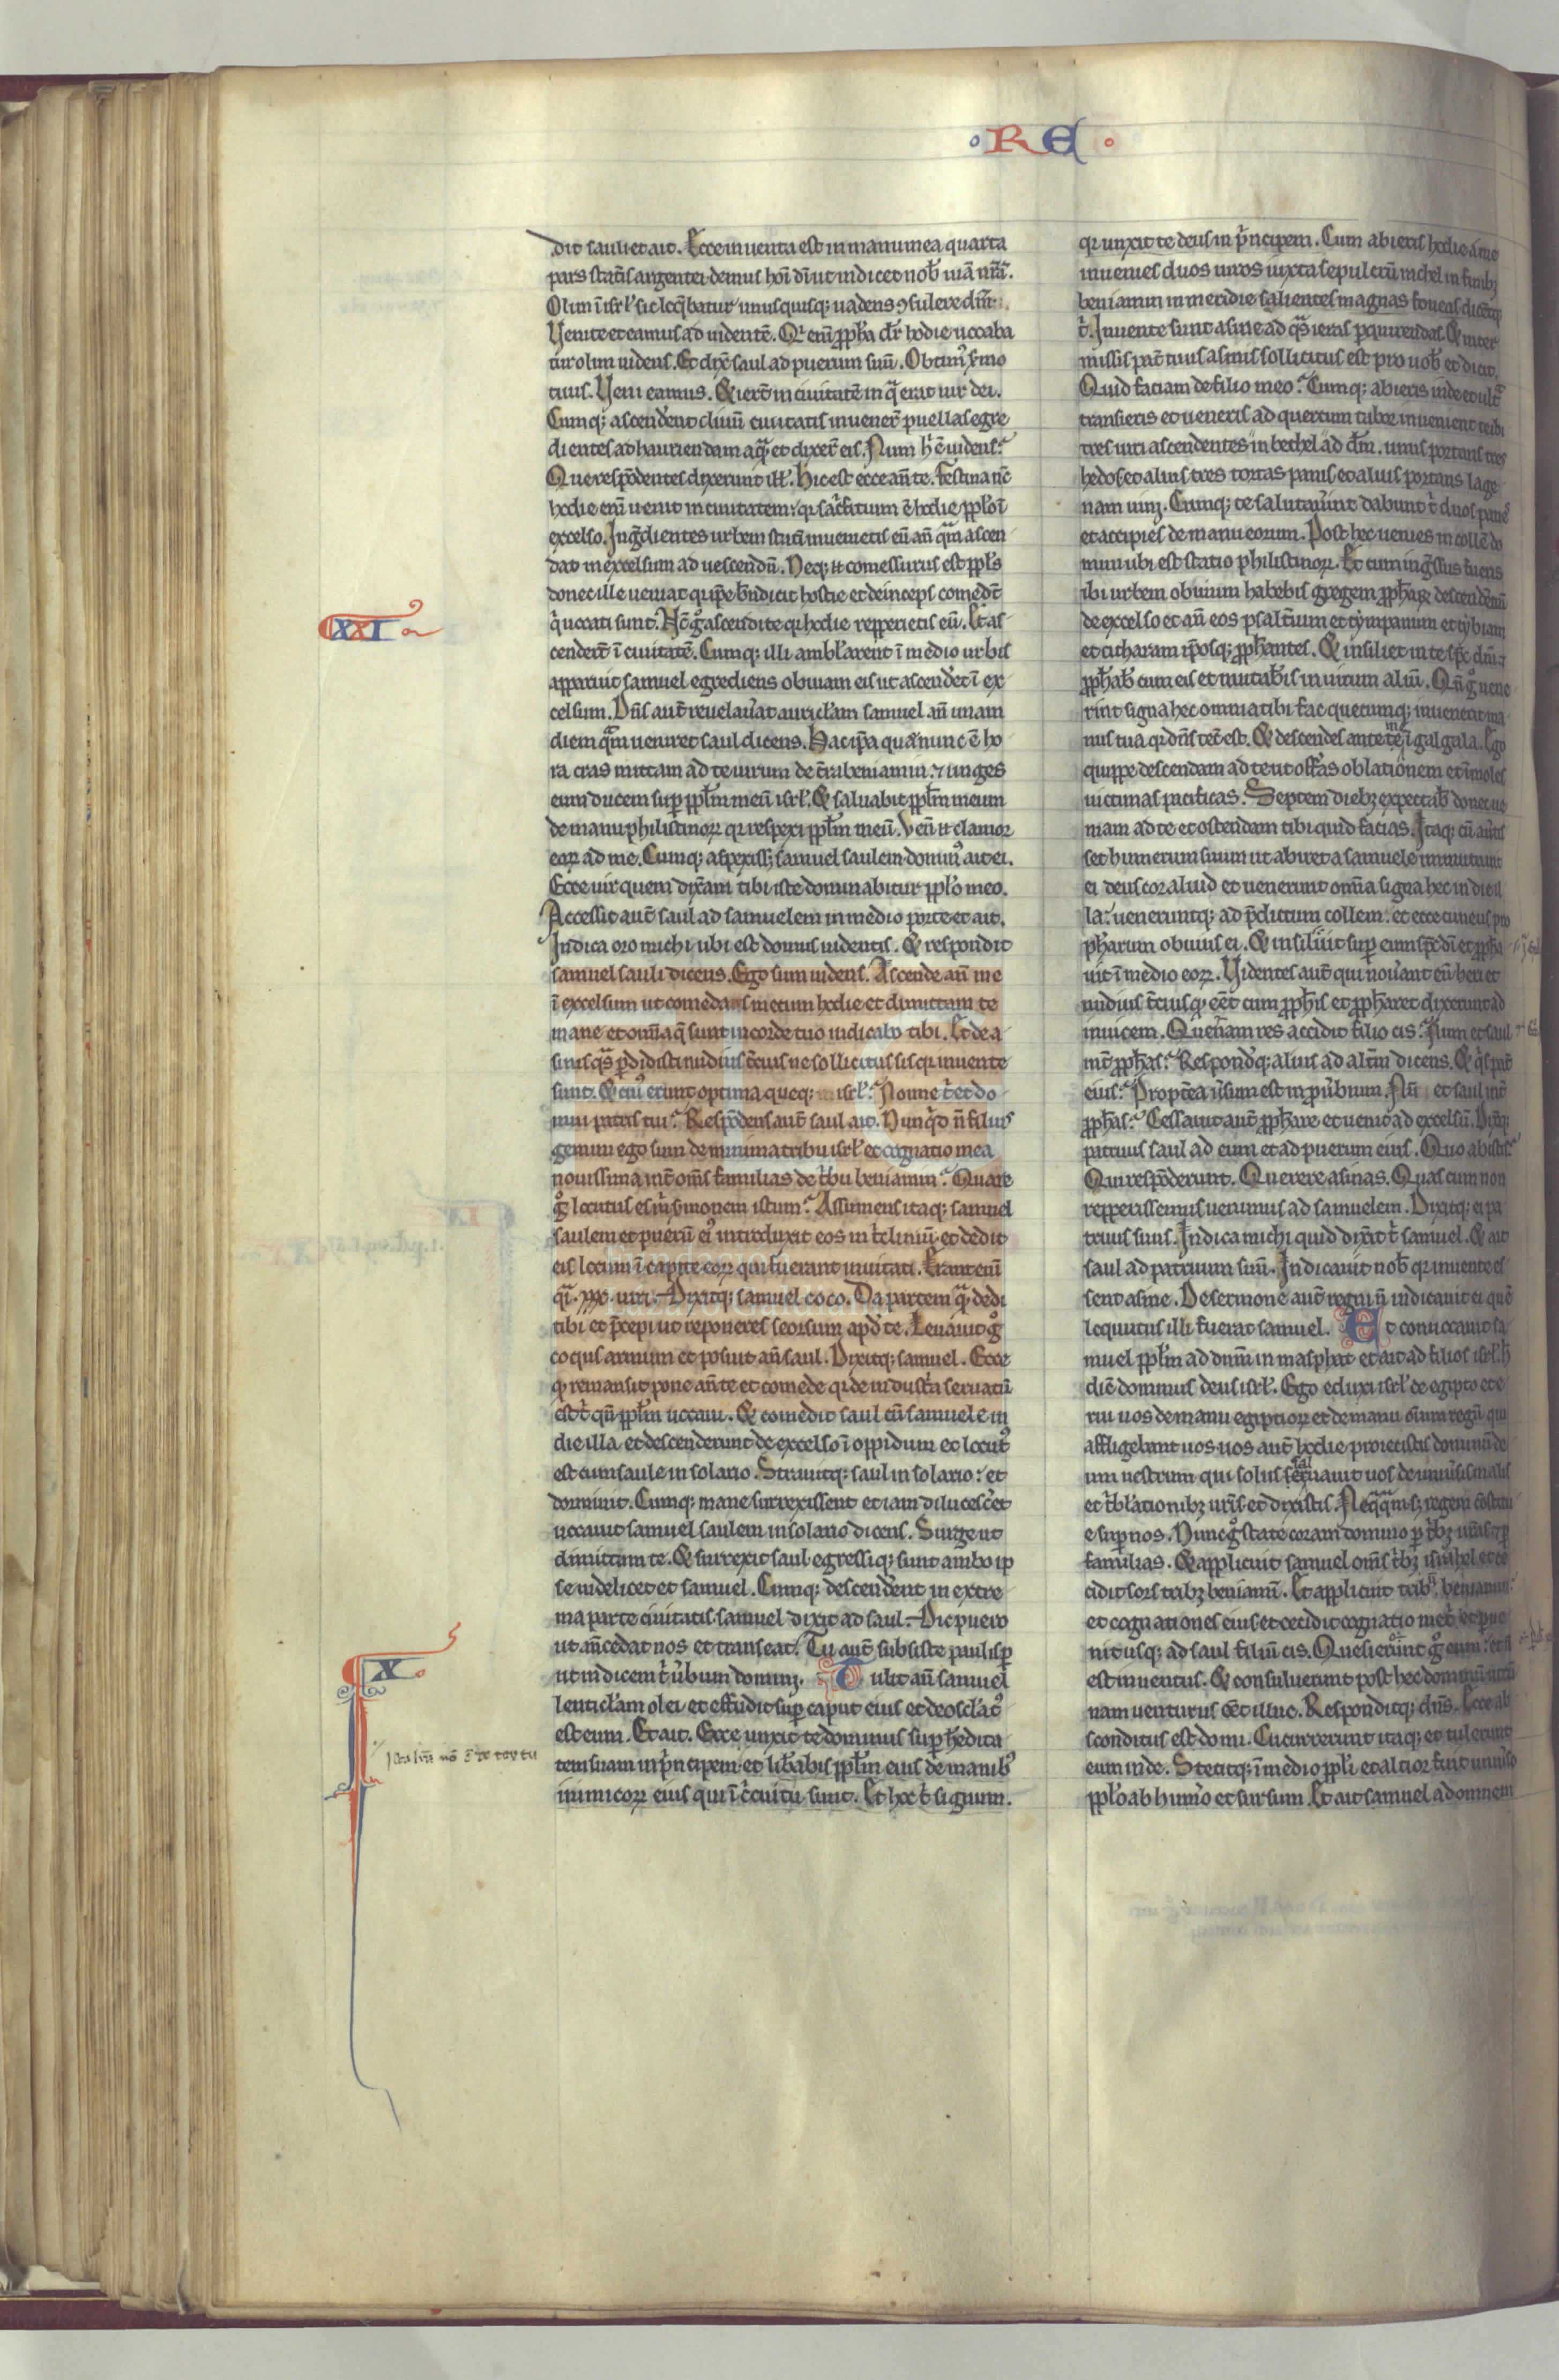 RE
dit saul et ait. Ecce inuenta est in manu mea quarta
pars stat̄is argentei demus hoī dī ut indicet nob̄ uiā nr̄ā.
Olim ī isrl̄ sic loq̄batur unusquisq; uadens ꝯsulere dm̄.
Uenite et eamus ad uidentē. Qi enī ꝓph̄a dr̄ hodie uocaba
tur olim uidens. Et dix̄ saul ad puerum suū. Obtim᷒ s̄mo
tuus. Ueni eamus. Et ier̄t in ciuitatē in qͣ erat uir dei.
Cumq; ascender̄ent cliuū ciuitatis inuener̄ puellas egre
dientes ad hauriendam aqͣ et dixer̄t eis. Num h̄ ē uidens?
Que respōdentes dixerunt ill̄. Hic est ecce an̄ te. Festina nc̄
hodie enī uenit in ciuitatem: qi sac̄fitium ē hodie ppl̄o ī
excelso. Ingͤdientes urbem statī inuenietis eū an̄ qͣm ascen
dat in excelsum ad uescendū. Neq; .n. comessurus est ppl̄s
donec ille ueniat qi ipē b̄ndicit hostie et deinceps comedt̄
q̇ uocati sunt. Nc̄ gͦ ascendite qi hodie repperietis eū. Et as
XXI
cender̄t ī ciuitatē. Cumq; illi ambl̄arent ī medio urbis
apparuit samuel egrediens obuiam eis ut ascendet ī ex
celsum. Dn̄s aut̄ reuelau̇at auricl̄am samuel an̄ unam
diem qͣm ueniret saul dicens. Hac ip̄a qua nunc ē ho
ra cras mittam ad te uirum de t̄ra beniamin. ⁊ unges
eum ducem sup̄ ppl̄m meū isrl̄. Et saluabit ppl̄m meum
de manu philistinoꝝ qi respexi ppl̄m meū. Uen̄ .n. clamor
eoꝝ ad me. Cumq; aspexiss; samuel saulem domin᷒ ait ei.
Ecce uir quem dix̄am tibi iste dominabitur ppl̄o meo.
Accessit aut̄ saul ad samuelem in medio porte et ait.
Indica oro michi ubi est domus uidentis. Et respondit
samuel sauli dicens. Ego sum uidens. Ascende an̄ me
ī excelsum ut comedas mecum hodie et dimittam te
mane et om̄ia q̄ sunt in corde tuo indicabo tibi. Et de a
sinis qͣs p̄didisti nudius t̄cius ne sollicitus sis qi inuente
sunt. Et cui᷒ erunt optima queq; isrl̄? Nonne t̄ et do
mui patris tui? Respōdens aut̄ saul ait. Nunqͥd n̄ filius
gemini ego sum de minima tribu isrl̄ et cognatio mea
nouissima int̄ om̄s familias de t̄bu beniamin? Quare
gͦ locutus es m̄ s̄monem istum? Assumens itaq; samuel
saulem et puerū ei᷒ introduxit eos in t̄cliniū et dedit
eis locum ī capite eoꝝ qui fuerant inuitati. Erant enī
qͣi .xxx. uiri. Dixitq; samuel coco. Da partem qͣ dedi
tibi et p̄cepi ut reponeres seorsum apd̄ te. Leuauit gͦ
cocus armum et posuit an̄ saul. Dixitq; samuel. Ecce
qͦ remansit pone an̄ te et comede qi de industia seruatū
est t̄ qn̄ ppl̄m uocaui. Et comedit saul cū samuele in
die illa et descenderunt de excelso ī oppidum et locut᷒
est cum saule in solario. Strauitq; saul in solario: et
dormiuit. Cumq; mane surrexissent et iam dilucescet
uocauit samuel saulem in solario dicens. Surge ut
dimittam te. Et surrexit saul egressiq; sunt ambo ip
se uidelicet et samuel. Cumq; descender̄ent in extre
ma parte ciuitatis samuel dixit ad saul. Dic puero
ut an̄cedat nos et transeat. Tu aut̄ subsiste paulisp̄
X
ut indicem t̄ u̇bum domini. Tulit aut̄ samuel
lenticl̄am olei et effudit sup̄ caput eius et deoscl̄at᷒
est eum. Et ait. Ecce unxit te dominus sup̄ hedita
tem suam in pͥncipem. et lib̄abis ppl̄m eius de manib᷒
inimicoꝝ eius qui ī c̄cuitu sunt. Et hoc t̄ signum.
qi unxit te deus in pͥncipem. Cum abieris hodie a me
inuenies duos uiros iuxta sepulcrū rachel in finib;
beniamin in meridie salientes magnas foueas dicētq;
t̄. Inuente sunt asine ad qͣs ieras perquirendas. Et inter
missis pat̄ tuus asinis sollicitus est pro uob̄ et dicit.
Quid faciam de filio meo? Cumq; abieris inde et ult̄
transieris et ueneris ad quercum tabor inuenient te ibi
tres uiri ascendentes in bethel ad dm̄. unus portans tres
hedos et alius tres tortas panis et alius portans lage
nam uini. Cumq; te salutau̇int dabunt t̄ duos panes
et accipies de manu eorum. Post hec uenies in collē do
mini ubi est statio philistinoꝝ. Et cum ingͤssus fueris
ibi urbem obuium habebis gregem ꝓph̄aꝝ descendentiū
de excelso et an̄ eos psalt̄ium et tympanum et tybiam
et citharam ip̄osq; ꝓph̄antes. Et insiliet in te sp̄c dn̄i ⁊
ꝓph̄ab̄ cum eis et mutab̄is in uirum aliū. Qn̄ gͦ uene
rint signa hec omnia tibi fac quecumq; inuenerit ma
nus tua qi dn̄s tec̄ est. Et descendes ante me ī galgala. Ego
quippe descendam ad te ut offeras oblationem et īmoles
uictimas pacificas. Septem dieb; expectab̄ donec ue
niam ad te et ostendam tibi quid facias. Itaq; cū au̇tis
set humerum suum ut abiret a samuele immutauit
ei deus cor aliud et uenerunt om̄ia signa hec in die il
la: ueneruntq; ad p̄dictum collem. et ecce cuneus pro
phetarum obuius ei. Et insiliuit sup̄ eum sp̄c dei et ꝓpha
uit ī medio eoꝝ. Uidentes aut̄ qui nou̇ant eū heri et
nudius t̄cius qi eēt cum ꝓph̄is et ꝓpharet dixerunt ad
inuicem. Quenam res accidit filio cis. Num et saul
int̄ ꝓph̄as? Respondq; alius ad alt̄m dicens. Et qͥs pat̄
eius? Propt̄ea u̇sum est in pu̇bium. Nū et saul int̄
ꝓph̄as? Cessauit aut̄ ꝓph̄are et uenit ad excelsū. Dixitq;
patruus saul ad eum et ad puerum eius. Quo abistis?
Qui respōderunt. Querere asinas. Quas cum non
repperissemus uenimus ad samuelem. Dixitq; ei pa
truus suus. Indica michi quid dix̄it t̄ samuel. Et ait
saul ad patruum suū. Indicauit nob̄ qi inuente es
sent asine. De sermone aut̄ regni n̄ indicauit ei quē
lequutus illi fuerat samuel. Et conuocauit sa
muel ppl̄m ad dnm̄ in masphat et ait ad filios isrl̄. h̄
dic̄ dominus deus isrl̄. Ego eduxi isrl̄ de egipto et e
rui uos de manu egiptioꝝ et de manu om̄ium regū qui
affligebant uos. uos aut̄ hodie proiecistis dominū de
um uestrum qui solus saluauit uos de uniu̇sis malis
et t̄bl̄ationib; uris̄ et dixistis. Neqͣqͣm s; regem cōstitu
e sup̄ nos. Nunc gͦ state coram domino p̄ t̄b; uras̄ et p̄
familias. Et applicuit samuel om̄s t̄b; israhel et ce
cidit sors trib; beniamī. Et applicuit trib̄ beniamin
et cognationes eius et cecidit cognatio metͥ et perue
nit usq; ad saul filiū cis. Quesierunt gͦ eum. et n̄
est inuentus. Et consuluerunt post hec dominū utrū
nam uenturus eēt illuc. Responditq; dn̄s. Ecce ab
sconditus est domi. Cucurrerunt itaq; et tulerunt
eum inde. Stetitq; ī medio ppl̄i et altior fuit uniu̇so
ppl̄o ab hum̄o et sursum. Et ait samuel ad omnem